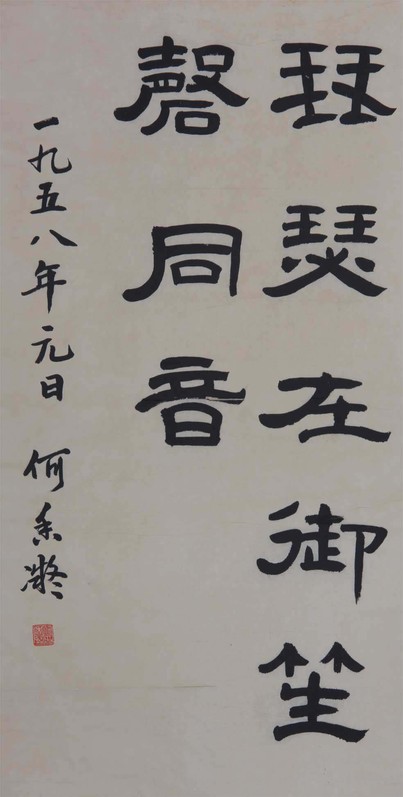 琴瑟在御笙
磬同音
一九五八年元日 何香凝